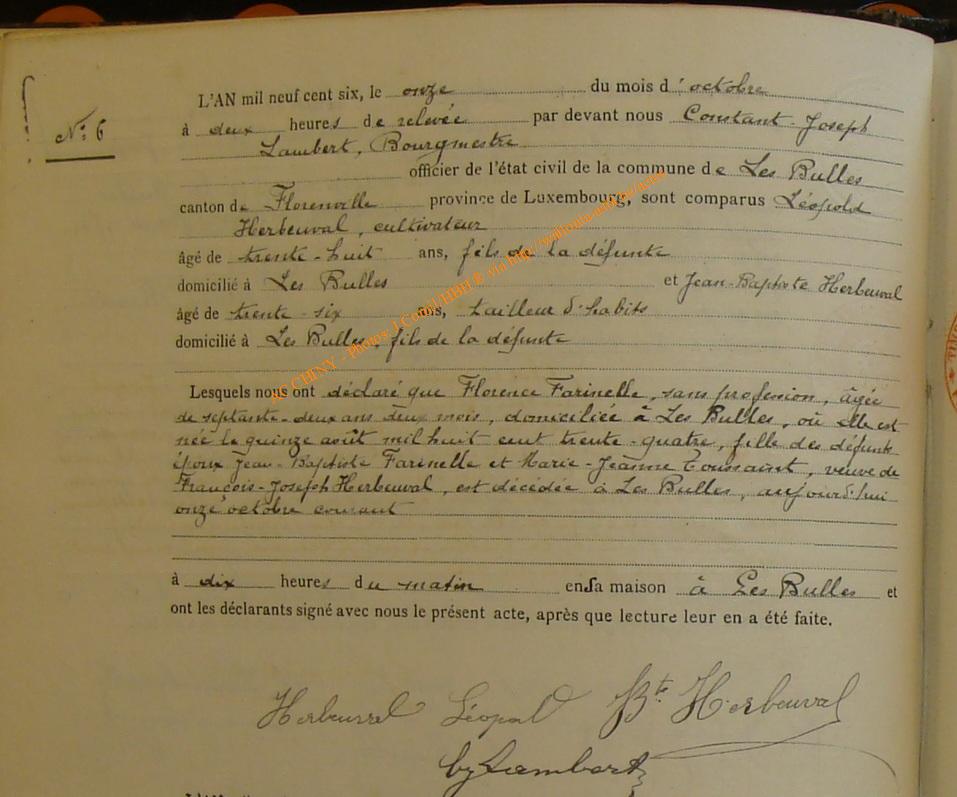 N.° 6
L'AN mil neuf cent six, le onze du mois d'octobre
à deux heures de relevée par devant nous Constant-Joseph
Lambert, Bourgmestre
officier de l'état civil de la commune de Les Bulles
canton de Florenville province de Luxembourg, sont comparus Léopold
Herbeuval, cultivateur
âgé de trente-huit ans, fils de la défunte
domicilié à Les Bulles et Jean-Baptiste Herbeuval
âgé de trente-six ans, tailleur d'habits
domicilié à Les Bulles, fils de la défunte
Lesquels nous ont déclaré que Florence Farinelle, sans profession, âgée
de septante-deux ans deux mois, domiciliée à Les Bulles, où elle est
née le quinze août mil huit cent trente-quatre, fille des défunts
époux Jean-Baptiste Farinelle et Marie-Jeanne Toussaint, veuve de
François-Joseph Herbeuval, est décédée à Les Bulles, aujourd'hui
onze octobre courant
à dix heures du matin en sa maison à Les Bulles et
ont les déclarants signé avec nous le présent acte, après que lecture leur en a été faite.
Herbeuval Léopold Bte Herbeuval
Lambert
CHINY - Photos J.Cornil HBH & via http://wallonia-asbl.be/actes